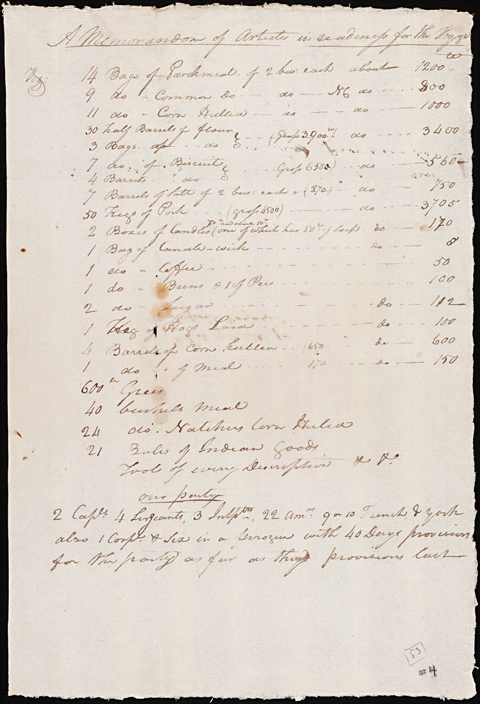 A Memorandom of Articles in readiness for the Voyage
Viz:
14 Bags of Parchmeal of 2 bus: each about 1200 lb
9 do - Common Do do 800
11 do - Corn Hulled do do 1000
30 half Barrels of flour (Gross 3900 wt) do 3400
3 Bags do do
7 do of Biscuit Gross 650 do 560
4 Barrels do
7 Barrels of Salt of 2 bus: each (870) do 750
50 Kegs of Pork (gross 4500) do 3705
2 Boxes of Candles (one of which has 50 lb of Soap do 170
1 Bag of Candle-wick do 8
1 do Coffee 50
1 do Beens & 1 of Peas 100
2 do Sugar do 112
1 Keg of Hogs Lard do 100
4 Barrels of Corn hulled (650) do 600
1 do of meal 170 do 150
600 lb Grees
40 bushels meal
24 do. Natches Corn Huled
21 Bales of Indian goods
Tools of every Description & &c.
our party
2 Capts. 4 Sergeants, 3 Intptrs, 22 Amns. 9 or 10 French & York
also 1 Corpl. & Six in a Perogue with 40 Days provisions
for the party as far as those provisions last
53
#4